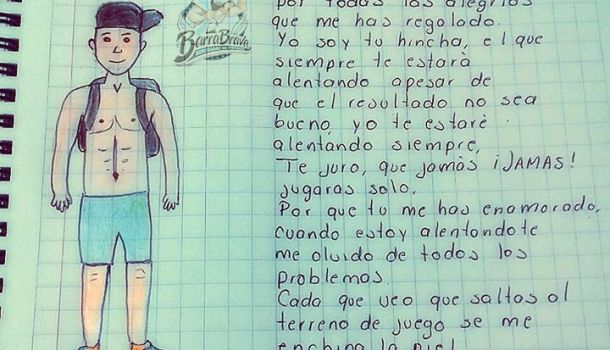 BarraBrava
por todas las alegrias
que me has regalado.
Yo soy tu hincha, el que
siempre te estarà
alentando apesar de
que el resultado no sea
bueno, yo te estaré
alentando siempre,
Te juro, que jamàs ¡JAMAS!
jugaras solo.
Por que tu me has enamorado,
cuando estoy alentandote
me oluido de todos los
problemas.
Cada que veo que saltas al
terreno de juego se me
enchina la piel